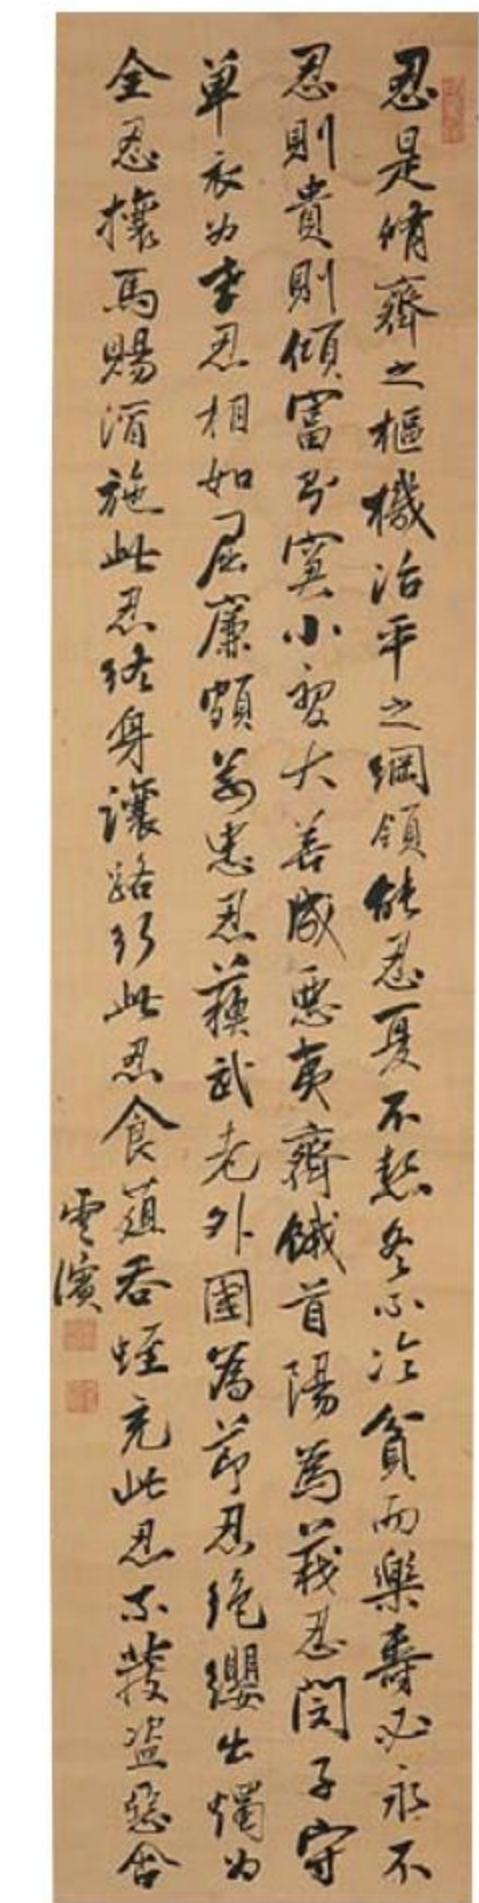 忍是脩齊之樞機治平之綱領能忍夏不熱冬不冷貧而樂壽必永不
忍則貴則傾富則寞小割大善成惡夷齊餓首陽為義忍閔子守
单衣为孝忍相如屈廉頗為忠忍蘓武老外国為节忍絶纓出燭为
全忍攘馬賜酒施此忍終身讓路行此忍食蒩吞蛭充此忍不發盜惡舍
雲濱